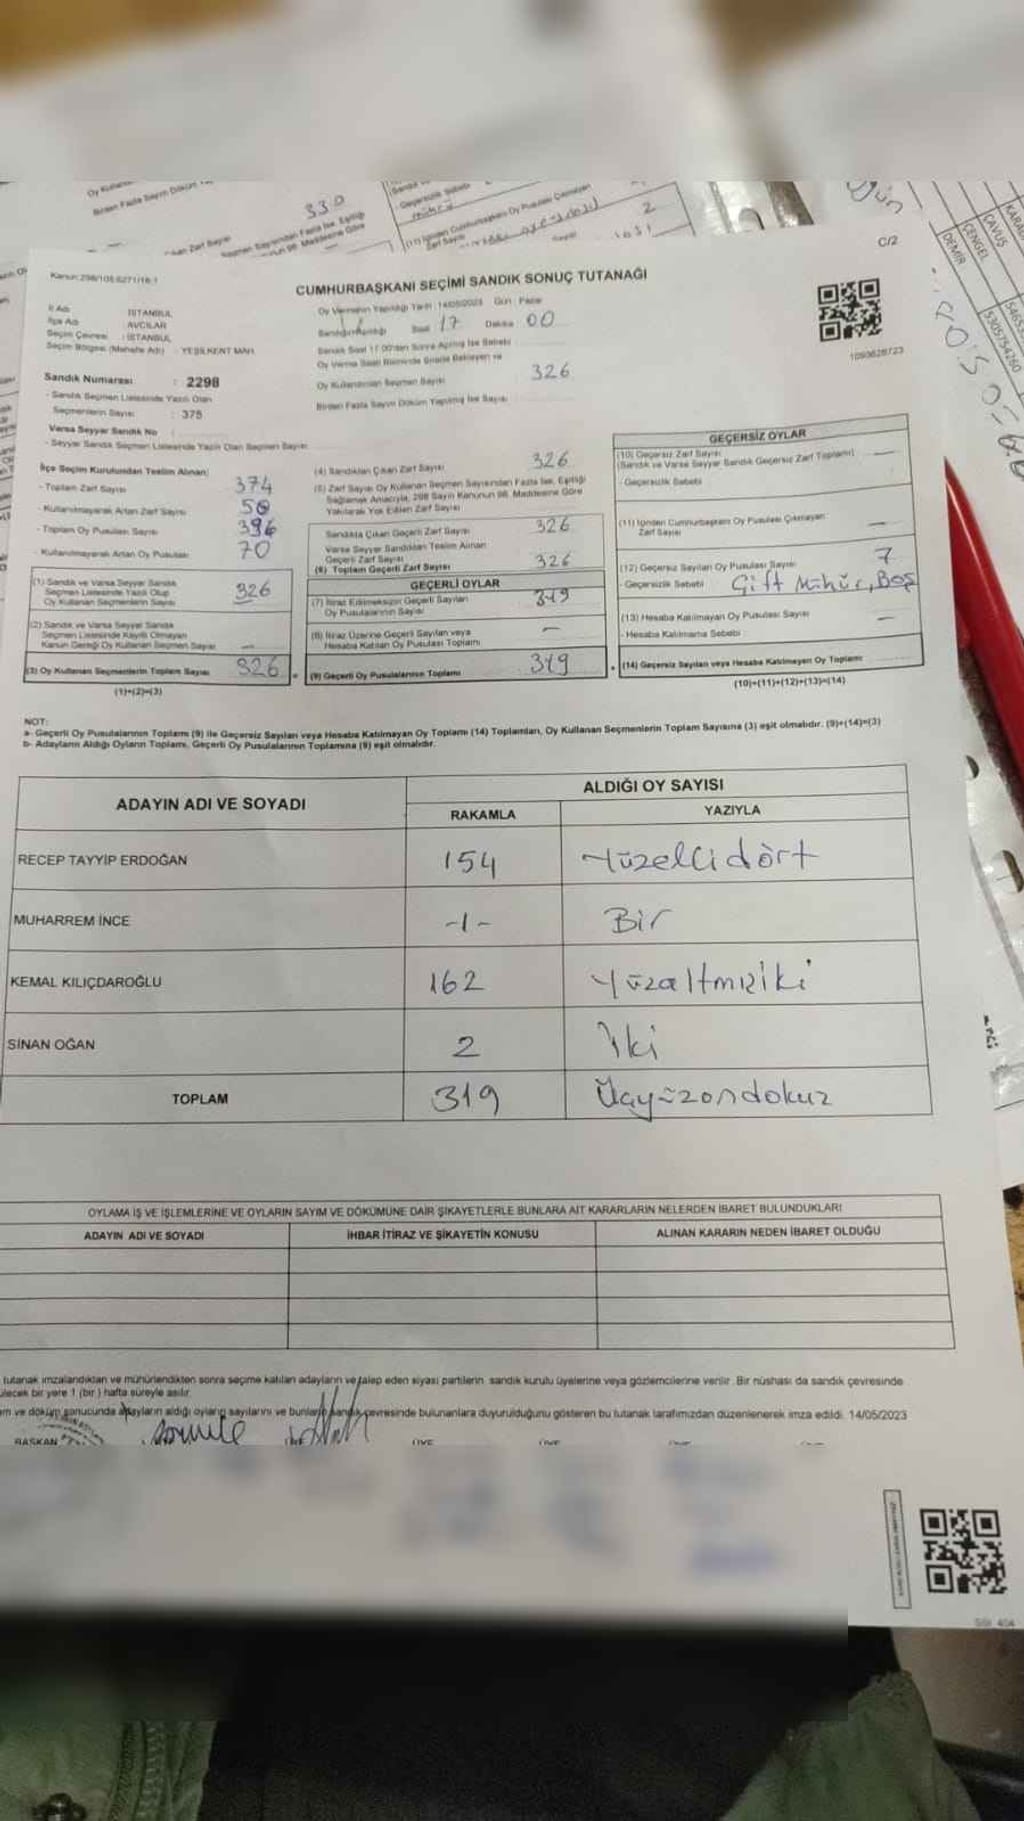 330
2
C/2
DEMİR
ÇENGEL
ÇAVUŞ
5305754260
Kanun:298/105 6271/16-1
CUMHURBAŞKANI SEÇİMİ SANDIK SONUÇ TUTANAĞI
İl Adı : İSTANBUL
İlçe Adı : AVCILAR
Seçim Çevresi : İSTANBUL
Seçim Bölgesi (Mahalle Adı) : YEŞİLKENT MAH.
Oy Vermenin Yapıldığı Tarih : 14/05/2023 Gün : Pazar
Sandığın Açıldığı Saat 17 Dakika 00
Sandık Saat 17.00'den Sonra Açılmış İse Sebebi
Oy Verme Saati Bitiminde Sırada Bekleyen ve
Oy Kullandırılan Seçmen Sayısı 326
Birden Fazla Sayım Döküm Yapılmış İse Sayısı
1093628723
Sandık Numarası : 2298
- Sandık Seçmen Listesinde Yazılı Olan
Seçmenlerin Sayısı : 375
Varsa Seyyar Sandık No
- Seyyar Sandık Seçmen Listesinde Yazılı Olan Seçmen Sayısı
İlçe Seçim Kurulundan Teslim Alınan:
- Toplam Zarf Sayısı 374
- Kullanılmayarak Artan Zarf Sayısı 50
- Toplam Oy Pusulası Sayısı 396
- Kullanılmayarak Artan Oy Pusulası 70
(1) Sandık ve Varsa Seyyar Sandık
Seçmen Listesinde Yazılı Olup
Oy Kullanan Seçmenlerin Sayısı 326
(2) Sandık ve Varsa Seyyar Sandık
Seçmen Listesinde Kayıtlı Olmayan
Kanun Gereği Oy Kullanan Seçmen Sayısı —
(3) Oy Kullanan Seçmenlerin Toplam Sayısı 326
(1)+(2)=(3)
(4) Sandıktan Çıkan Zarf Sayısı 326
(5) Zarf Sayısı Oy Kullanan Seçmen Sayısından Fazla İse, Eşitliği
Sağlamak Amacıyla, 298 Sayılı Kanunun 98. Maddesine Göre
Yakılarak Yok Edilen Zarf Sayısı
Sandıkta Çıkan Geçerli Zarf Sayısı 326
Varsa Seyyar Sandıktan Teslim Alınan
Geçerli Zarf Sayısı
(6) Toplam Geçerli Zarf Sayısı 326
GEÇERLİ OYLAR
(7) İtiraz Edilmeksizin Geçerli Sayılan
Oy Pusulalarının Sayısı 319
(8) İtiraz Üzerine Geçerli Sayılan veya
Hesaba Katılan Oy Pusulası Toplamı —
(9) Geçerli Oy Pusulalarının Toplamı 319
GEÇERSİZ OYLAR
(10) Geçersiz Zarf Sayısı —
(Sandık ve Varsa Seyyar Sandık Geçersiz Zarf Toplamı)
- Geçersizlik Sebebi
(11) İçinden Cumhurbaşkanı Oy Pusulası Çıkmayan
Zarf Sayısı —
(12) Geçersiz Sayılan Oy Pusulası Sayısı 7
- Geçersizlik Sebebi Çift Mühür, Boş
(13) Hesaba Katılmayan Oy Pusulası Sayısı —
- Hesaba Katılmama Sebebi
(14) Geçersiz Sayılan veya Hesaba Katılmayan Oy Toplamı
(10)+(11)+(12)+(13)=(14)
NOT:
a- Geçerli Oy Pusulalarının Toplamı (9) ile Geçersiz Sayılan veya Hesaba Katılmayan Oy Toplamı (14) Toplamları, Oy Kullanan Seçmenlerin Toplam Sayısına (3) eşit olmalıdır. (9)+(14)=(3)
b- Adayların Aldığı Oyların Toplamı, Geçerli Oy Pusulalarının Toplamına (9) eşit olmalıdır.
ADAYIN ADI VE SOYADI
ALDIĞI OY SAYISI
RAKAMLA YAZIYLA
RECEP TAYYİP ERDOĞAN 154 Yüzellidört
MUHARREM İNCE -1- Bir
KEMAL KILIÇDAROĞLU 162 Yüzaltmışiki
SİNAN OĞAN 2 İki
TOPLAM 319 Üçyüzondokuz
OYLAMA İŞ VE İŞLEMLERİNE VE OYLARIN SAYIM VE DÖKÜMÜNE DAİR ŞİKAYETLERLE BUNLARA AİT KARARLARIN NELERDEN İBARET BULUNDUKLARI
ADAYIN ADI VE SOYADI İHBAR İTİRAZ VE ŞİKAYETİN KONUSU ALINAN KARARIN NEDEN İBARET OLDUĞU
tutanak imzalandıktan ve mühürlendikten sonra seçime katılan adayların ve talep eden siyasi partilerin sandık kurulu üyelerine veya gözlemcilerine verilir. Bir nüshası da sandık çevresinde
ülecek bir yere 1 (bir) hafta süreyle asılır.
m ve döküm sonucunda adayların aldığı oyların sayılarını ve bunların sandık çevresinde bulunanlara duyurulduğunu gösteren bu tutanak tarafımızdan düzenlenerek imza edildi. 14/05/2023
BAŞKAN